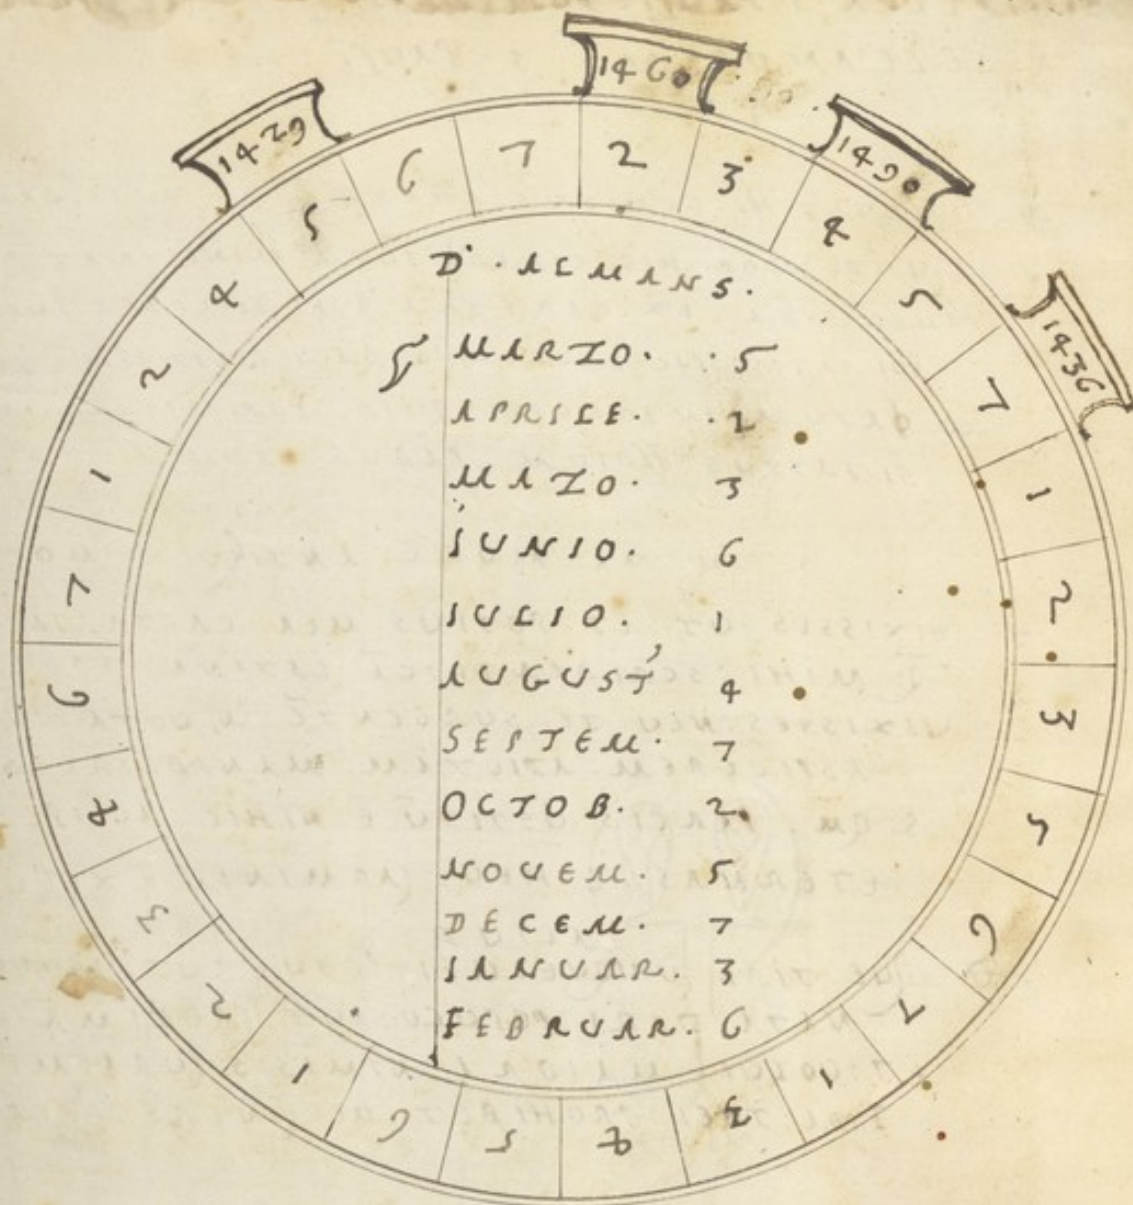 1429
1460
1490
1436
2 3 4 5 7 1 2 3 5 6 7 1 3 4 5 6 1 2 3 4 6 7 1 2 4 5 6 7
MARZO. . 5
APRILE. . 2
MAZO. 3
IUNIO. 6
IULIO. 1
AUGUST' 4
SEPTEM. 7
OCTOB. 2.
NOUEM. 5
DECEM. 7
IANUAR. 3
FEBRUAR. 6